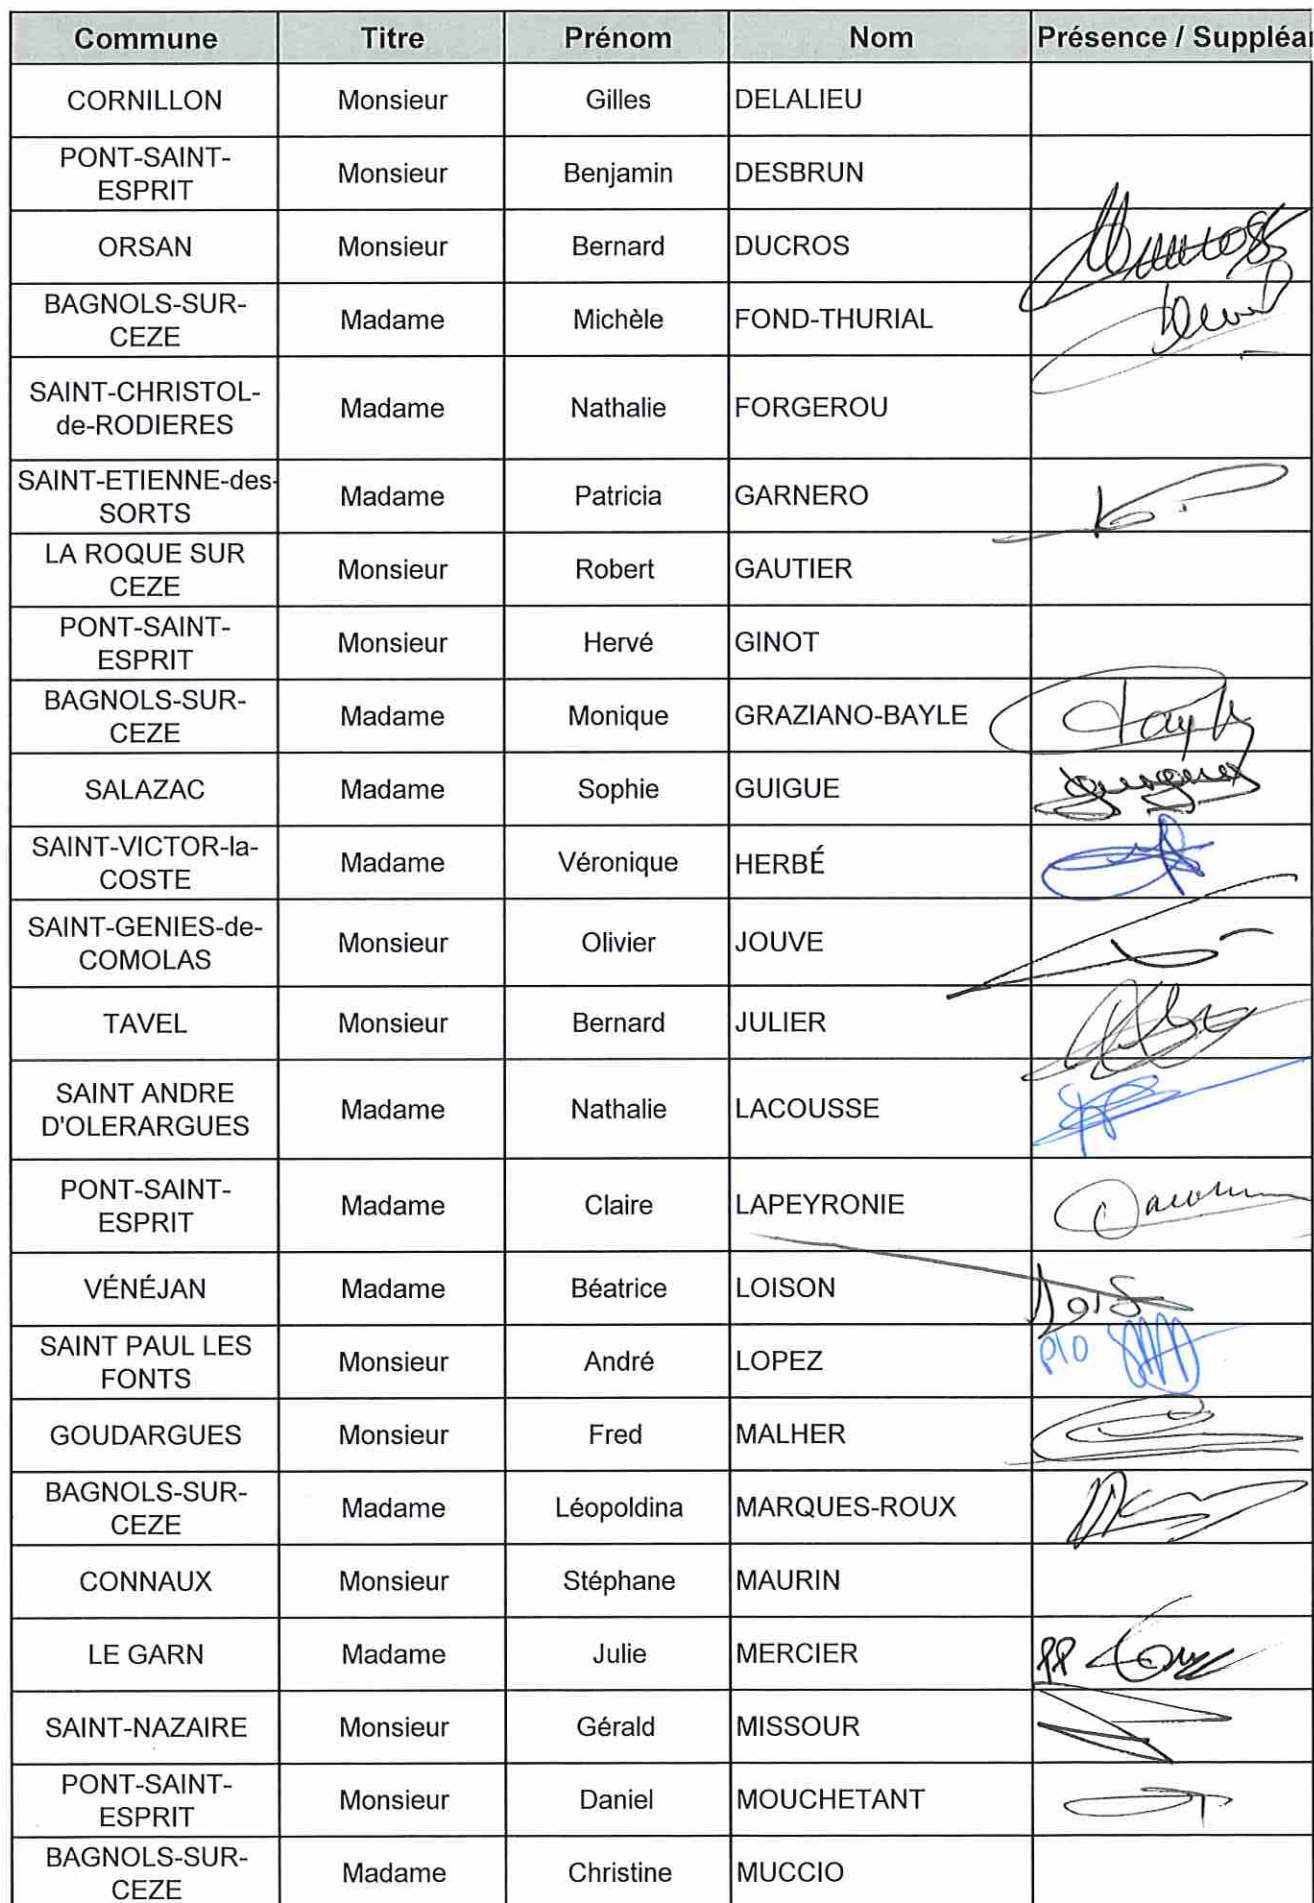 Commune Titre Prénom Nom Présence / Suppléa
CORNILLON Monsieur Gilles DELALIEU
PONT-SAINT-
ESPRIT Monsieur Benjamin DESBRUN
ORSAN Monsieur Bernard DUCROS
BAGNOLS-SUR-
CEZE Madame Michèle FOND-THURIAL
SAINT-CHRISTOL-
de-RODIERES Madame Nathalie FORGEROU
SAINT-ETIENNE-des-
SORTS Madame Patricia GARNERO
LA ROQUE SUR
CEZE Monsieur Robert GAUTIER
PONT-SAINT-
ESPRIT Monsieur Hervé GINOT
BAGNOLS-SUR-
CEZE Madame Monique GRAZIANO-BAYLE
SALAZAC Madame Sophie GUIGUE
SAINT-VICTOR-la-
COSTE Madame Véronique HERBÉ
SAINT-GENIES-de-
COMOLAS Monsieur Olivier JOUVE
TAVEL Monsieur Bernard JULIER
SAINT ANDRE
D'OLERARGUES Madame Nathalie LACOUSSE
PONT-SAINT-
ESPRIT Madame Claire LAPEYRONIE
VÉNÉJAN Madame Béatrice LOISON
SAINT PAUL LES
FONTS Monsieur André LOPEZ
GOUDARGUES Monsieur Fred MALHER
BAGNOLS-SUR-
CEZE Madame Léopoldina MARQUES-ROUX
CONNAUX Monsieur Stéphane MAURIN
LE GARN Madame Julie MERCIER
SAINT-NAZAIRE Monsieur Gérald MISSOUR
PONT-SAINT-
ESPRIT Monsieur Daniel MOUCHETANT
BAGNOLS-SUR-
CEZE Madame Christine MUCCIO